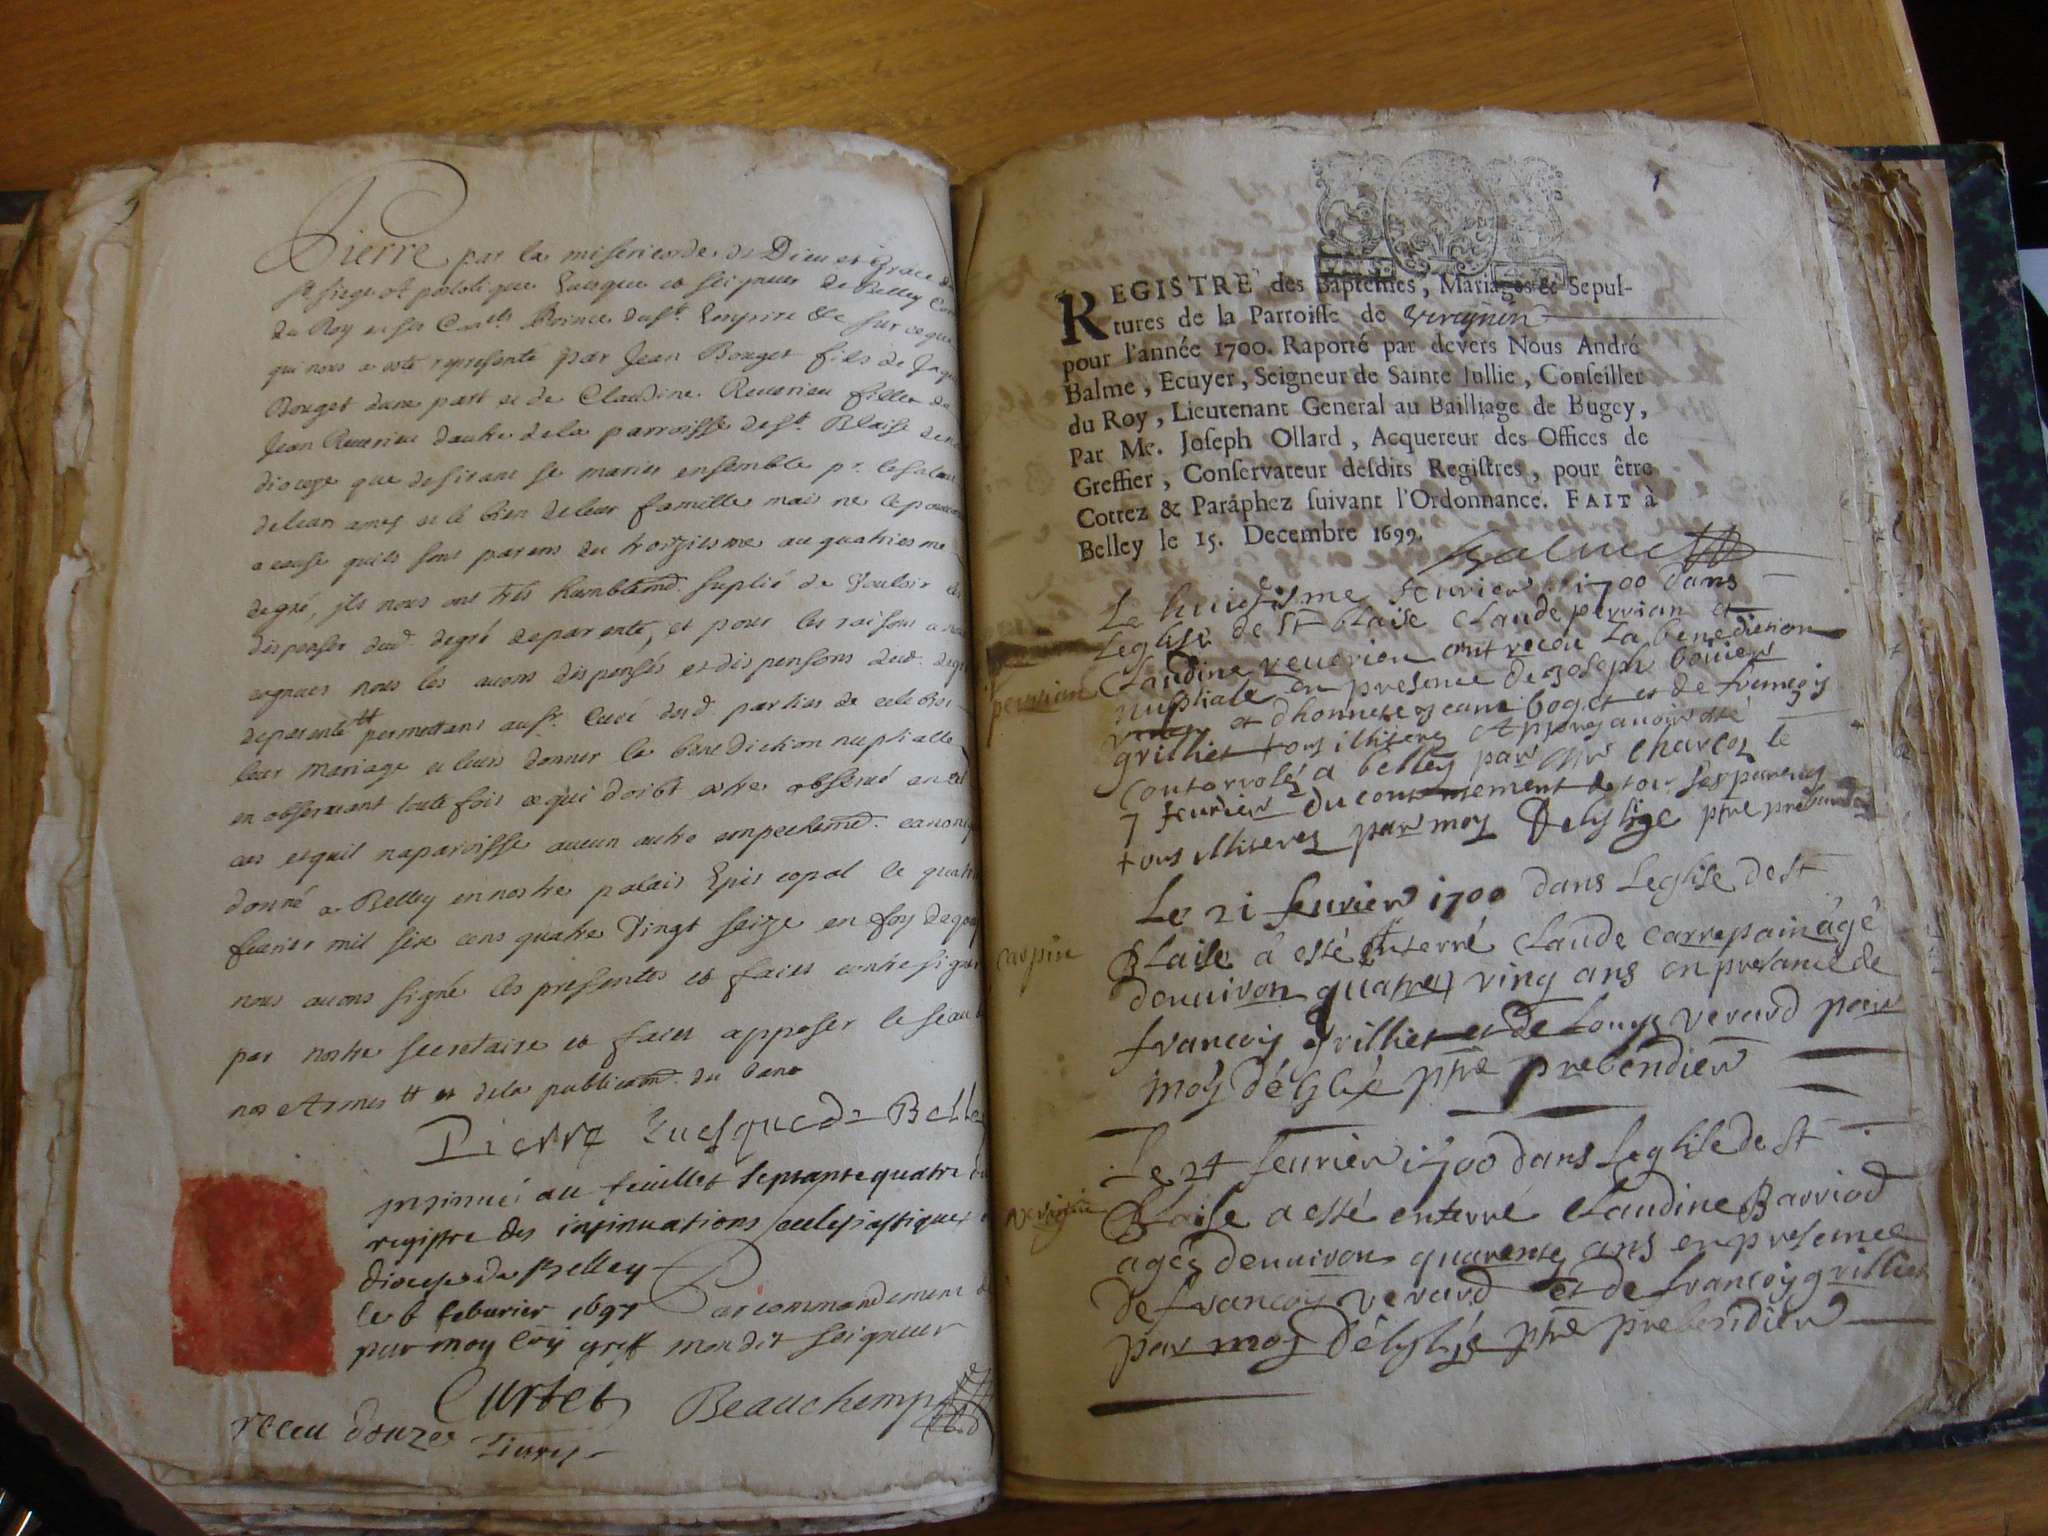 Pierre par la misericorde de Dieu et Grace du
st siege Apostolique Euesque et seigneur de Belley
du Roy en ses Con.els Prince du st. Empire &c sur ce que
qui nous a esté representé par Jean Bouget fils de
Bouget dune part et de Claudine Reuerieu fille de
Jean Reuerieu dautre de la parroisse de st. Blaise de
diocese que desirant se marier ensemble pr. le salut
de leurs ames et le bien de leur famille mais ne le pouuant
a cause quils sont parens du troiziesme au quatriesme
degré, ils nous ont trés humblemt. suplié de Vouloir les
dispenser dud. degré de parenté, et pour les raisons a nous
cognues nous les auons dispensés et dispensons dud. degré
de parenté tt permettant au sr. Curé desd. parties de celebrer
leur mariage et leurs donner la benediction nuptialle
en obseruant toute fois ce qui doibt estre obserué en tel
cas et quil naparoisse aucun autre empechemt. canonique
donné a Belley en nostre palais Episcopal le quatre
feurier mil six cens quatre Vingt seize en foy de quoy
nous auons signé les presentes et faict contresigner
par nostre secretaire et faict apposer le seau de
nos Armes tt et de la publicaon. du banc
Pierre Euesque de Belley
Insinué au feuillet septante quatre du
registre des insinuations ecclesiastiques
diocese de Belley
le 6 feburier 1697 Par commandement de
par moy greff mondit seigneur
Curtet Beauchemp
receu douze liures
1
REGISTRE des Baptemes, Mariages & Sepul-
tures de la Parroisse de Virignin
pour l'année 1700. Raporté par devers Nous André
Balme, Ecuyer, Seigneur de Sainte Jullie, Conseiller
du Roy, Lieutenant General au Bailliage de Bugey,
Par Me. Joseph Ollard, Acquereur des Offices de
Greffier, Conservateur desdits Registres, pour être
Cottez & Parâphez suivant l'Ordonnance. FAIT à
Belley le 15. Decembre 1699.
Balme
Le huitisme feurier 1700 dans
Leglise de st blaise Claude perrian et
Claudine reuerieu ont receu La benediction
perrian
nuptiale en presence de Joseph bouier
et dhonneste jeam boget et de francoiy
grilliet tous illiteres Apprez auoir esté
Contorrolé a belley par Mr Charcot le
7 feurier du contentement de tous ses parens
tous illiterez par moy Delylige ptre prebendier
Le 21 feurier 1700 dans Leglise de st
Blaise à esté enterré Claude carrepain âgé
carpin
denuiron quatrex ving ans en presance de
francoiy grilliet et de Louys verard par
moy délylie ptre prebendier
Le 24 feurier 1700 dans Leglise de st
Blaise a esté enterré Claudine Barriod
agée denuiron quarente ans en presence
de francoiy verard et de francoiy grilliet
par moy délylié ptre prebendier